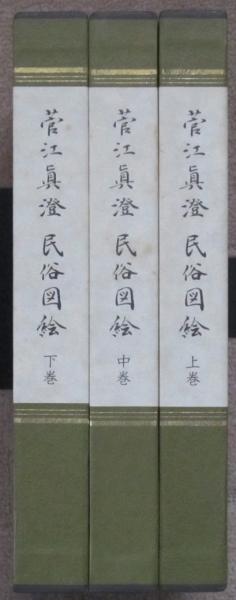 菅江眞澄 民俗図絵 上巻
菅江眞澄 民俗図絵 中巻
菅江眞澄 民俗図絵 下巻